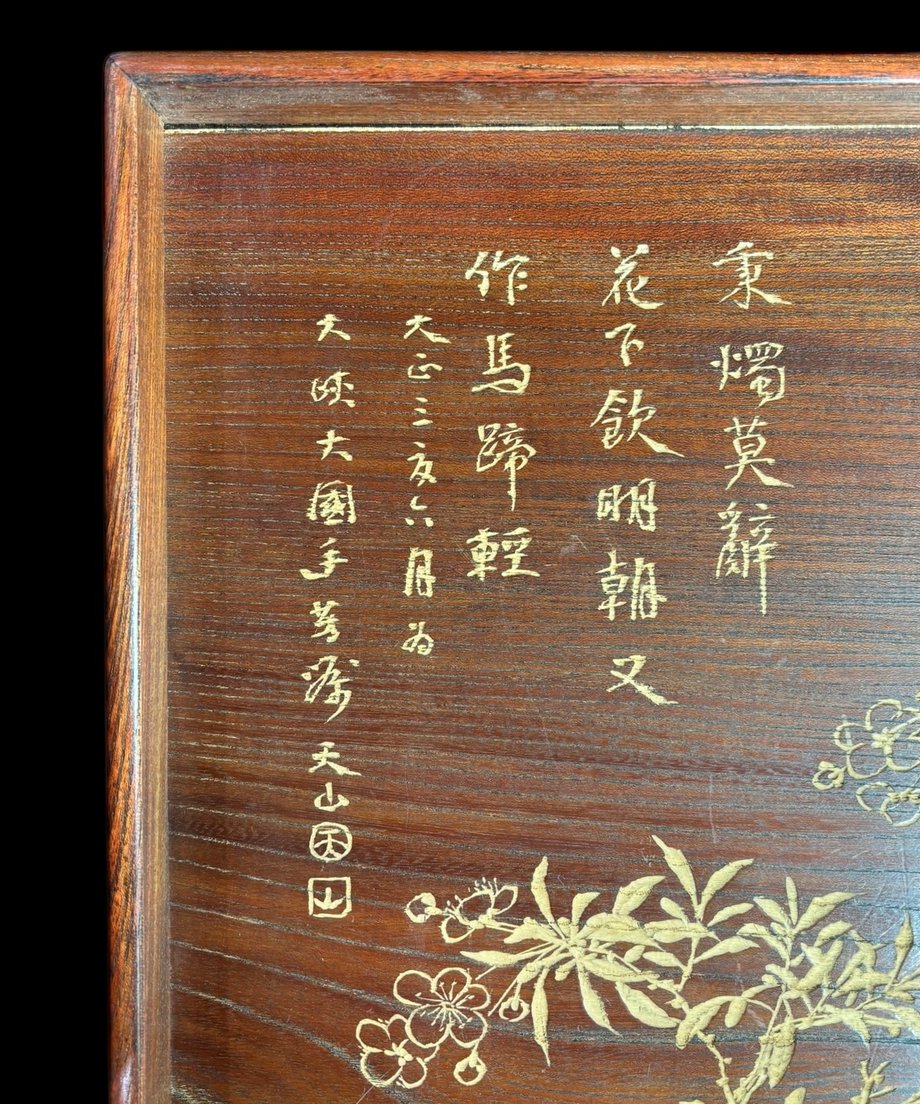 秉燭莫辭
花下飲明朝又
作馬蹄輕
大正三亥六月為
大峡大國手芳嘱 天山 天 山